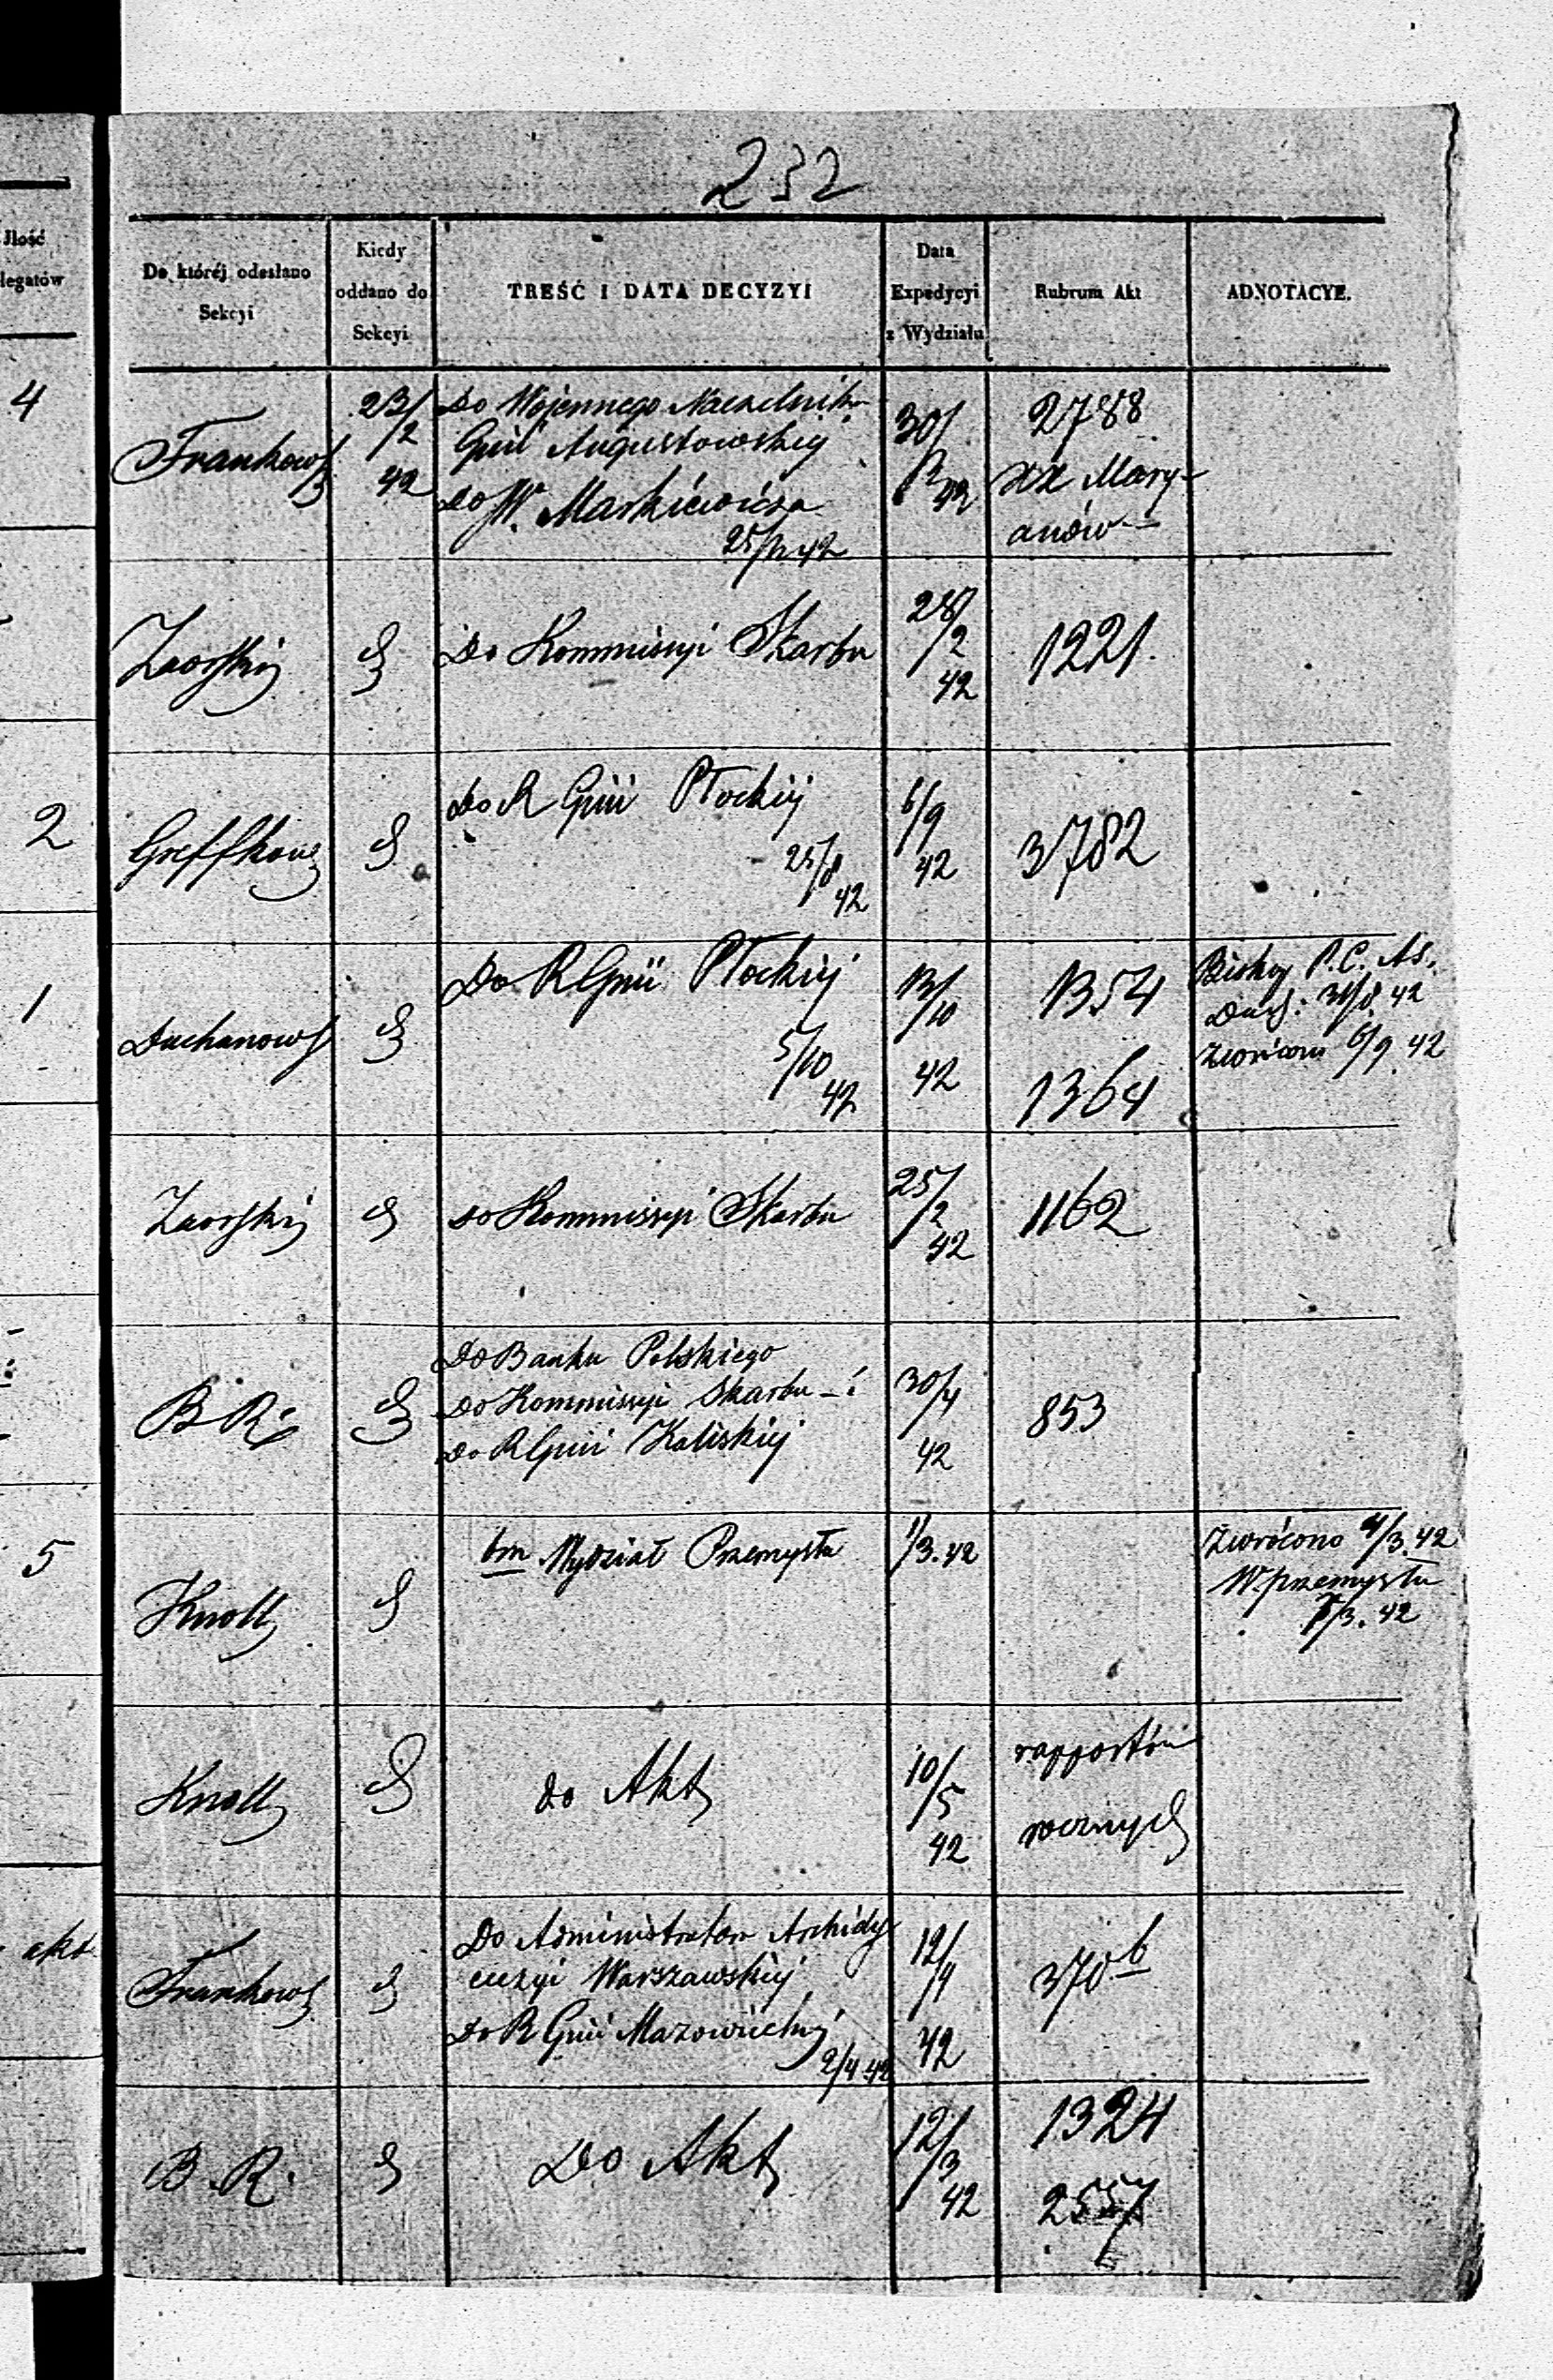 232
Jlość
legatów
Do któréj odesłano
Sekcyi
Kiedy
oddano do
Sekcyi
TREŚĆ I DATA DECYZYI
Data
Expedycyi
z Wydziału
Rubrum Akt
ADNOTACYE.
4
Frankows
23/2
42
Do Wojennego Naczelnika
Gnii Augustowskiej
do W. Markiewicza
25/2 42
30/
42
2788
XX Mary-
anów
Zaorski
Do Kommissyi Skarbu
28/2
42
1221.
2
Greffkow
do R Gnii Płockiej
25/8
42
6/9
42
3782
1
Duchanows
Do R Gnii Płockiej
5/10
42
13/10
42
1354
1364
P. C. As.
31/8 42
Zwrócono 6/9 42
Zaorski
do Kommissyi Skarbu
25/2
42
1162
B R
Do Banku Polskiego
Do Kommissyi Skarbu - i
Do R Gnii Kaliskiej
30/4
42
853
5
Knoll
bm Wydział Przemysłu
1/3. 42
Zwrócono 4/3. 42
W. przemysłu
/3. 42
Knoll
do Akt
10/5
42
rapportów
rocznych
akt
Frankows
Do Administratora Archidy
ecezyi Warszawskiej
Do R Gnii Mazowieckiej
2/4 42
12/4
42
370 b
B. R.
Do Akt
12/3
42
1324
2557